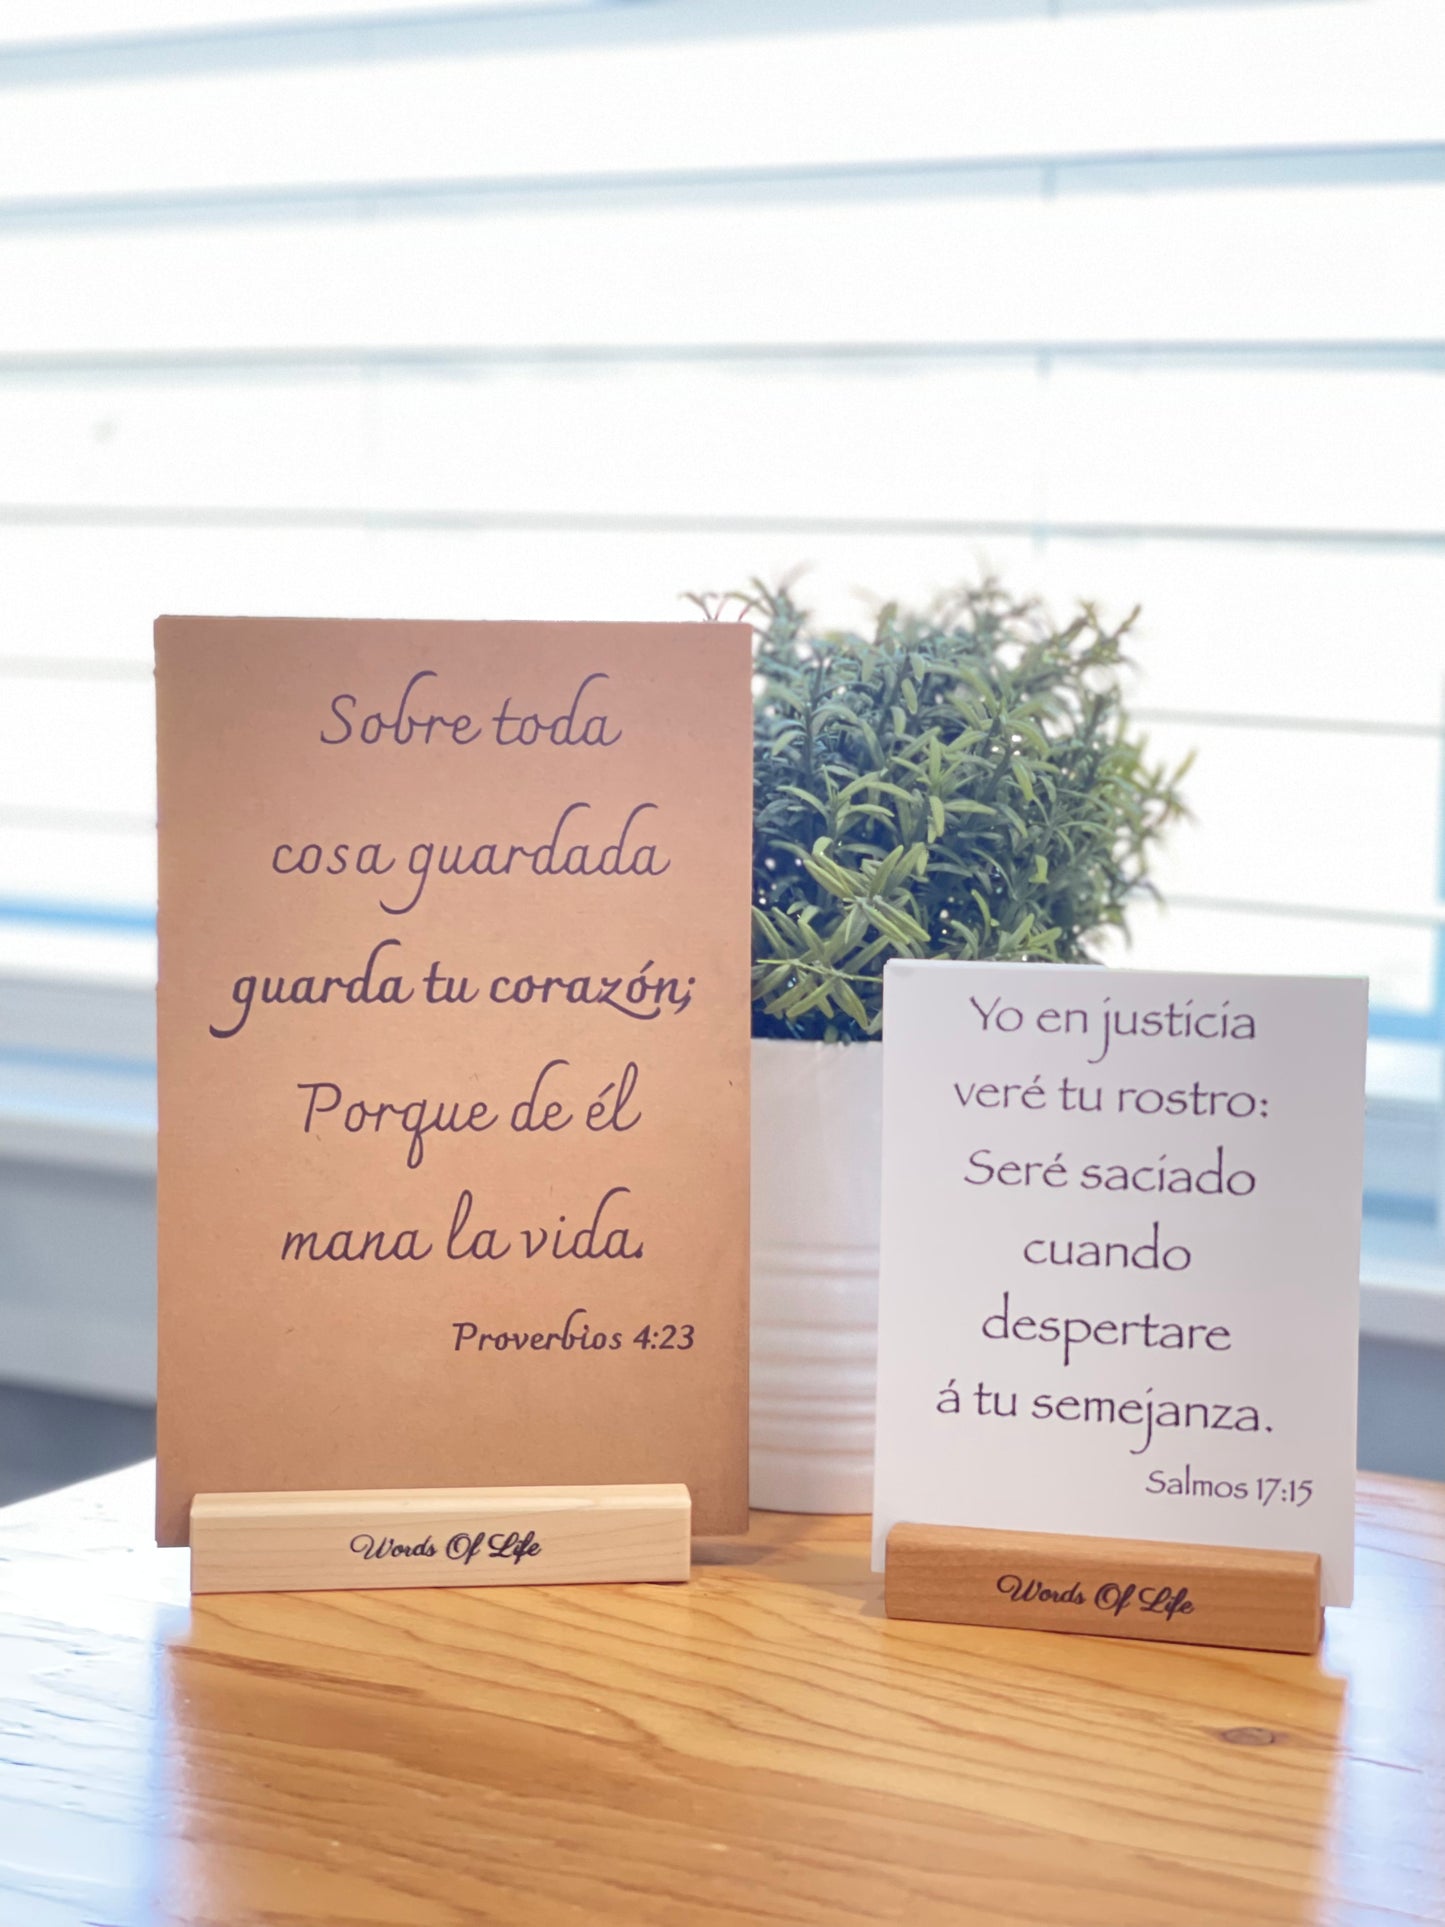 Sobre toda
cosa guardada
guarda tu corazón;
Porque de él
mana la vida.
Proverbios 4:23
Words Of Life
Yo en justicia
veré tu rostro:
Seré saciado
cuando
despertare
á tu semejanza.
Salmos 17:15
Words Of Life